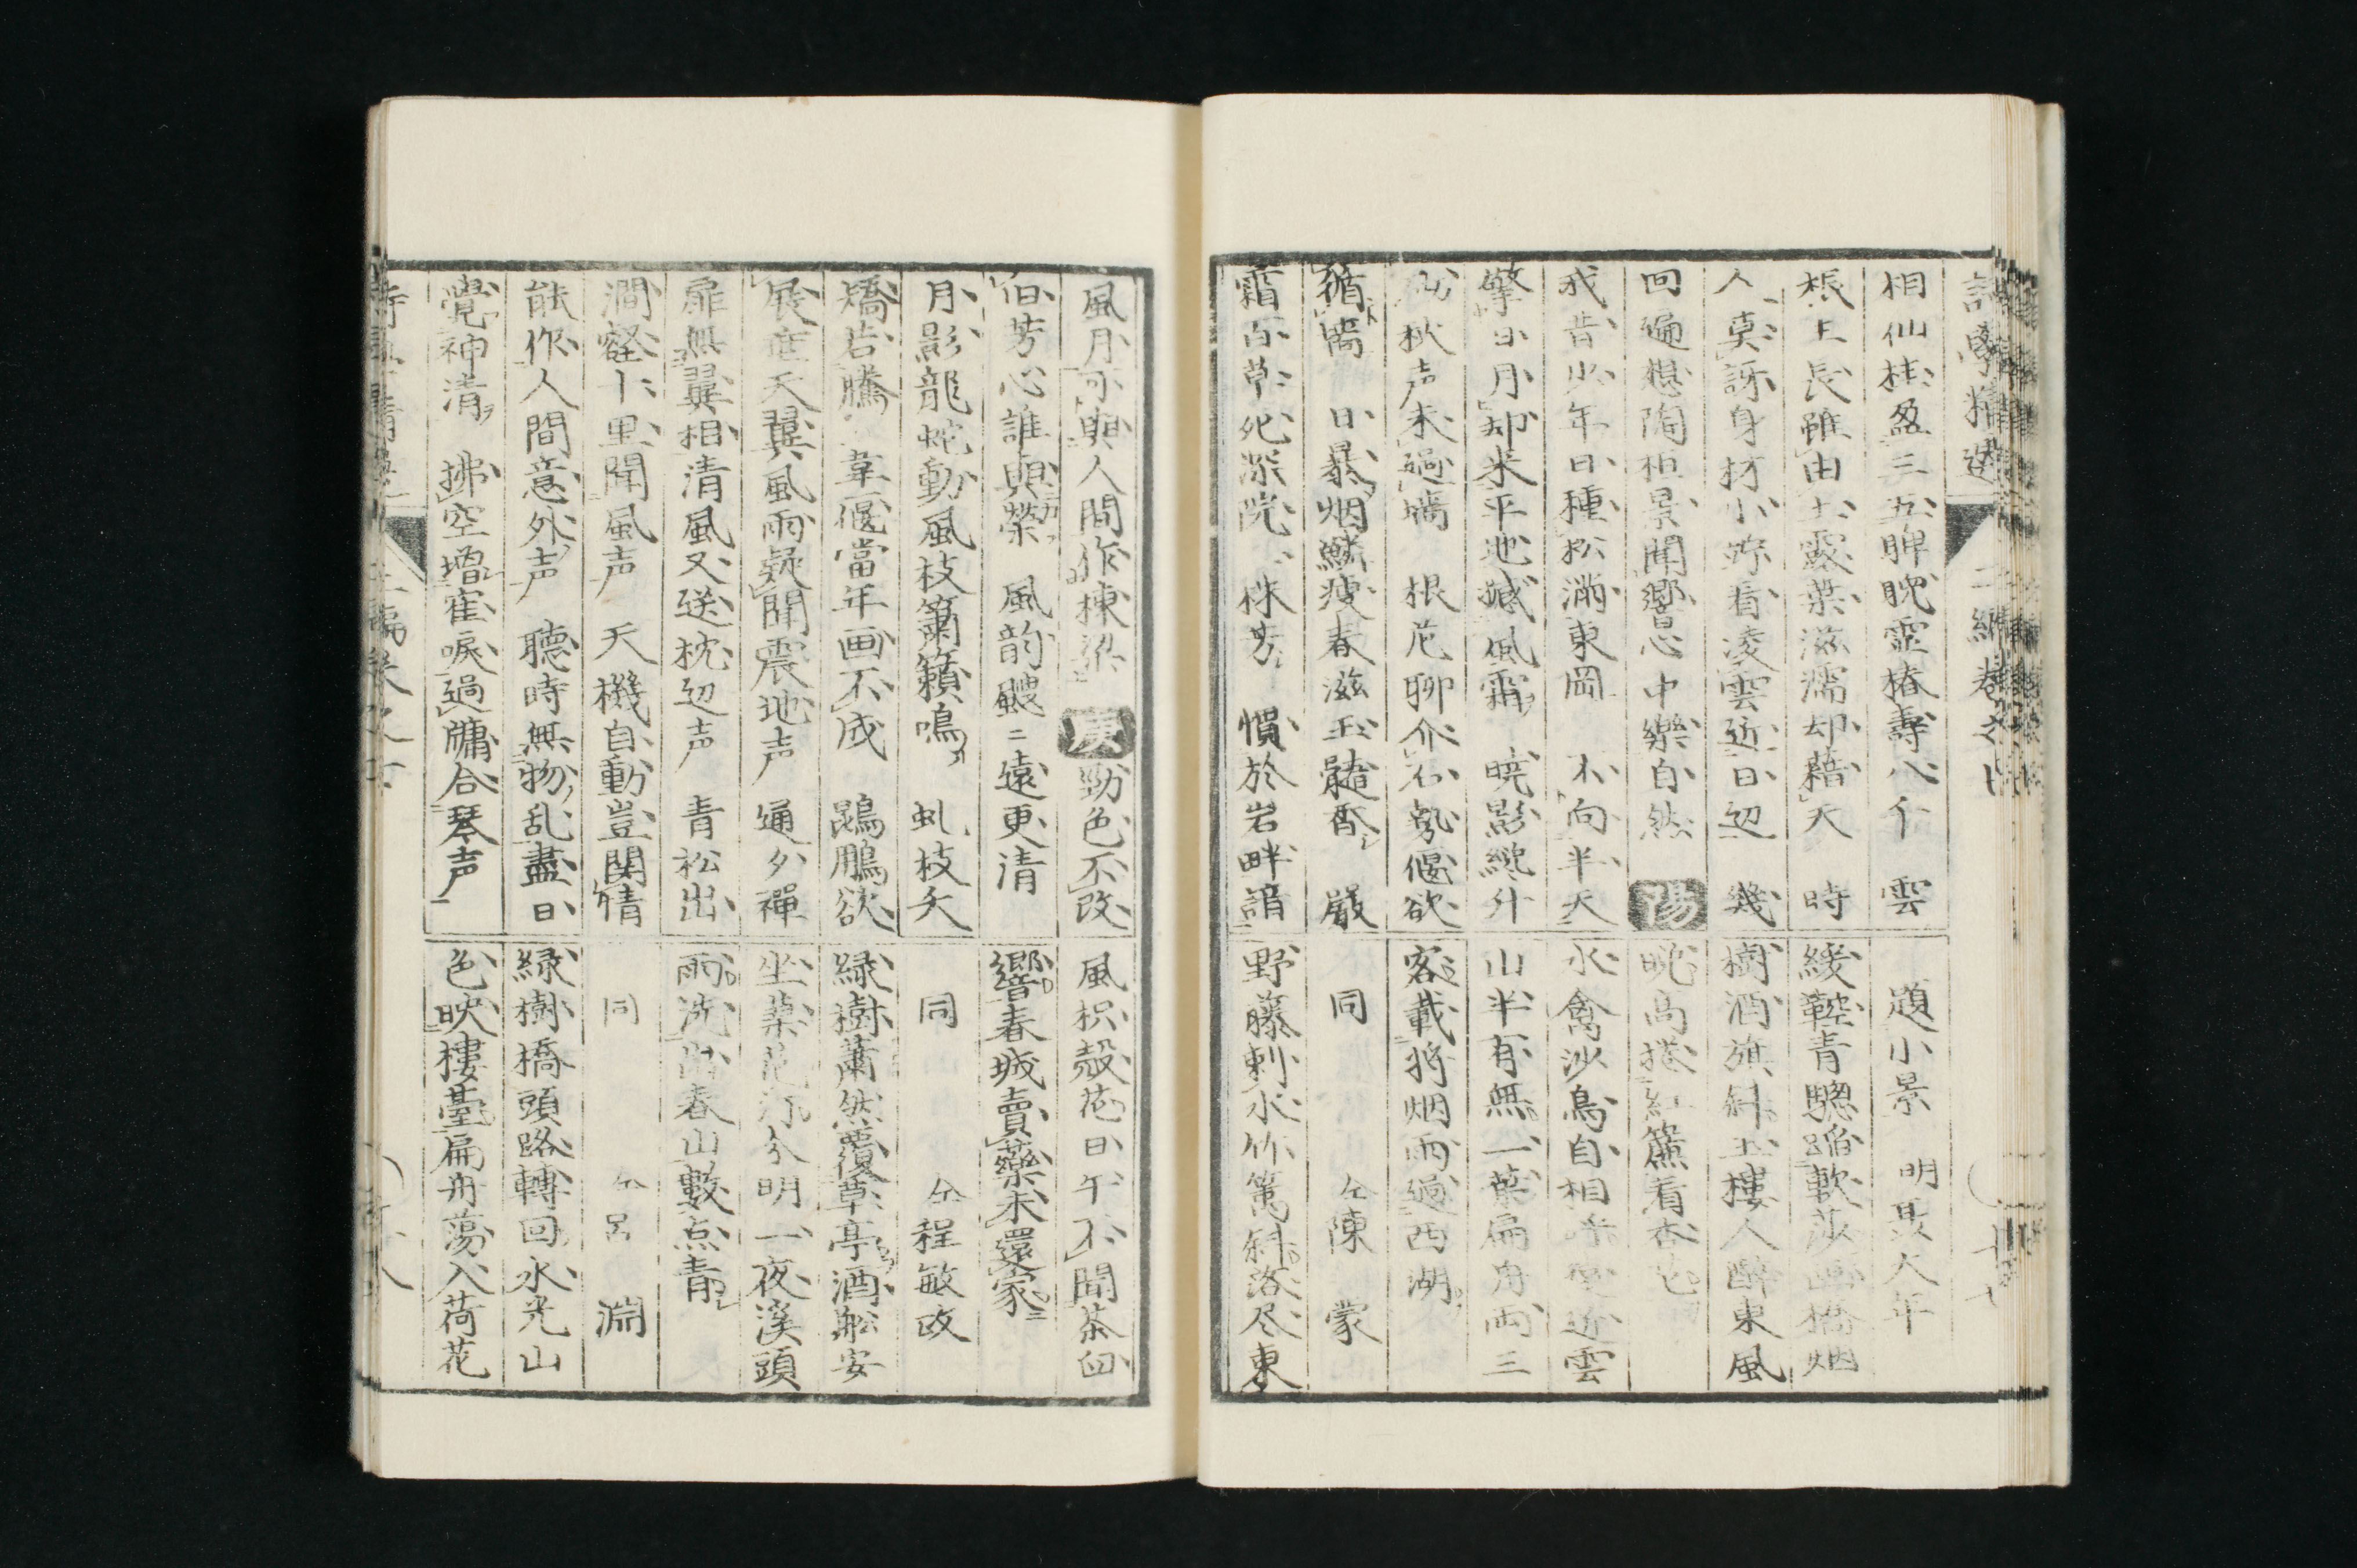 詩學精選 二編卷之十
相仙桂盈三五脾睨霊椿壽八千 雲
根上長雖由土露葉滋濡却藉天 時
人莫訝身材小行看凌雲近日辺 幾
回遍想陶桓景聞響忌中樂自然 陽
我昔少年日種松満東岡 不向半天
擎日月却來平地撼風霜 暁影縱升
秋声未過墻 根厄聊介石勢偃欲
循 日暴烟鱗痩春滋玉髄香 嚴
霜百草死深院一株芳 慣於岩畔諳
題小景 明聂大年
緩鞚青驄踏軟莎画橋烟
樹酒旗斜玉樓人酔東風
晩高捲紅簾看杏花
水禽沙鳥自相呼遠近雲
山半有無一葉扁舟両三
客載将烟雨過西湖
同 仝陳 蒙
野藤刺水竹篱斜落尽東
風月可與人間作棟梁 庚 勁色不改
旧芳心誰與榮 風韵颼〻遠更清
月影龍蛇動風枝簫籟鳴 虬枝夭
矯若騰 韋偃當年画不成 鵾鵬欲
展垂天翼風雨疑聞震地声 通夕禪
扉無翼相清風又送枕辺声 青松出
澗壑十里聞風声 天機自動豈関情
能作人間意外声 聽時無物乱盡日
覺神清 拂空增雀唳過牗合琴声
風枳殻花日午不聞茶臼
響春城賣藥未還家
同 仝程敏政
緑樹蕭然覆草亭酒舩安
坐葉 分明一夜溪頭
雨洗出春山數点青
同 仝呂 淵
緑樹橋頭路轉回水光山
色映樓臺扁舟蕩入荷花